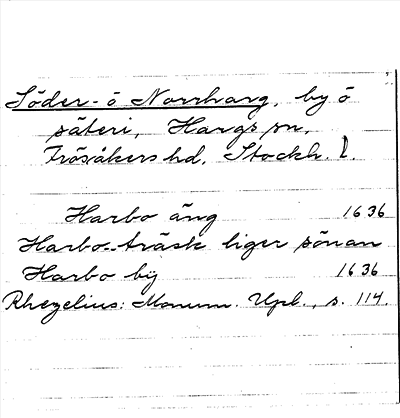 Söder- ö Norrharg, by ö
säteri, Hargs sn,
Frösåkers hd, Stockh. l.
Harbo äng 1636
Harbo-träsk liger sönan
Harbo bÿ 1636
Rhezelius: Monum. Upl., s. 114.